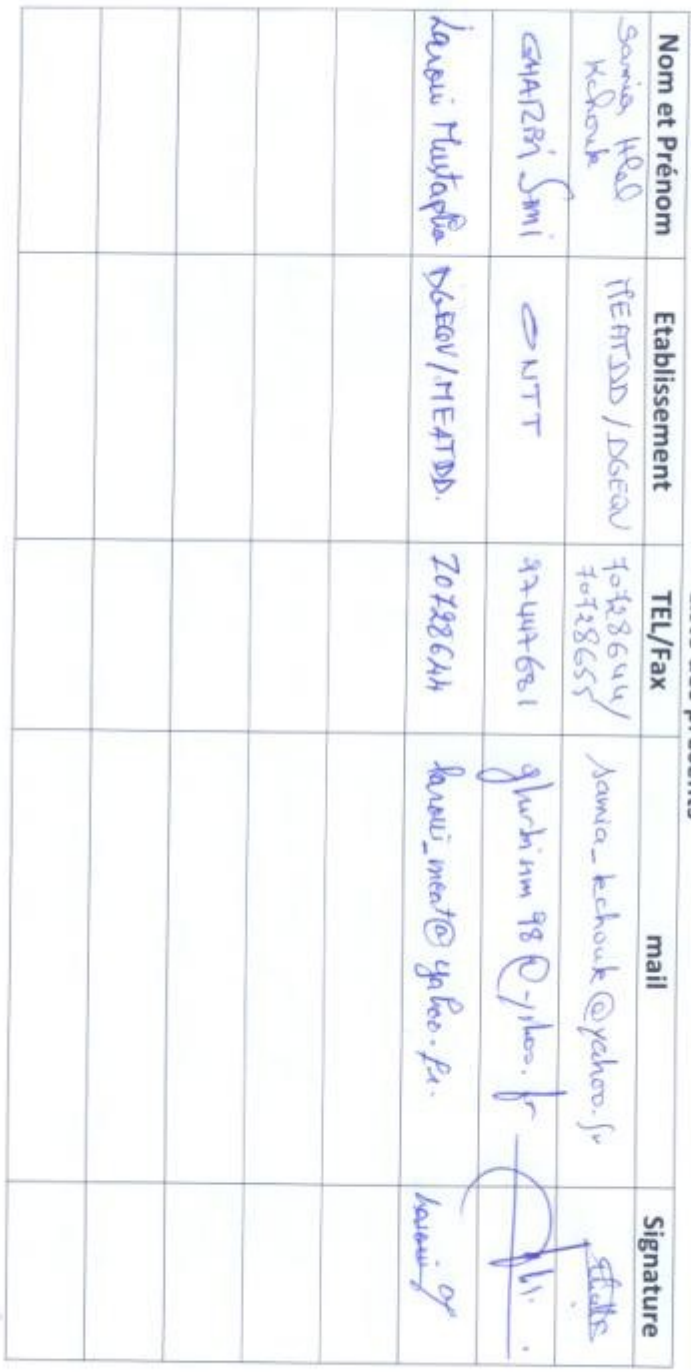 présents
Nom et Prénom Etablissement TEL/Fax mail Signature
Samia Hlel
Kchouk
MEATDD/DGEQV
70728644/
70728655
samia_kchouk@yahoo.fr
GHARBI Sami
ONTT
97447681
98@yahoo.fr
Laroui Mustapha
DGEQV/MEATDD.
70728644
laroui_meat@yahoo.fr.
Laroui